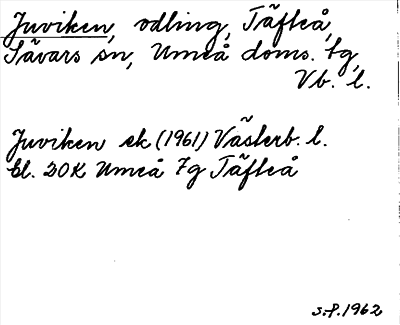 Juviken, odling, Täfteå,
Sävars sn, Umeå doms. tg,
Vb. l.
Juviken ek (1961) Västerb. l.
bl. 20K Umeå 7g Täfteå
S.P. 1962